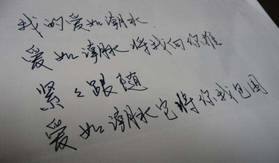 我的爱如潮水
爱如潮水将我向你推
紧々跟随
爱如潮水它将你我包围